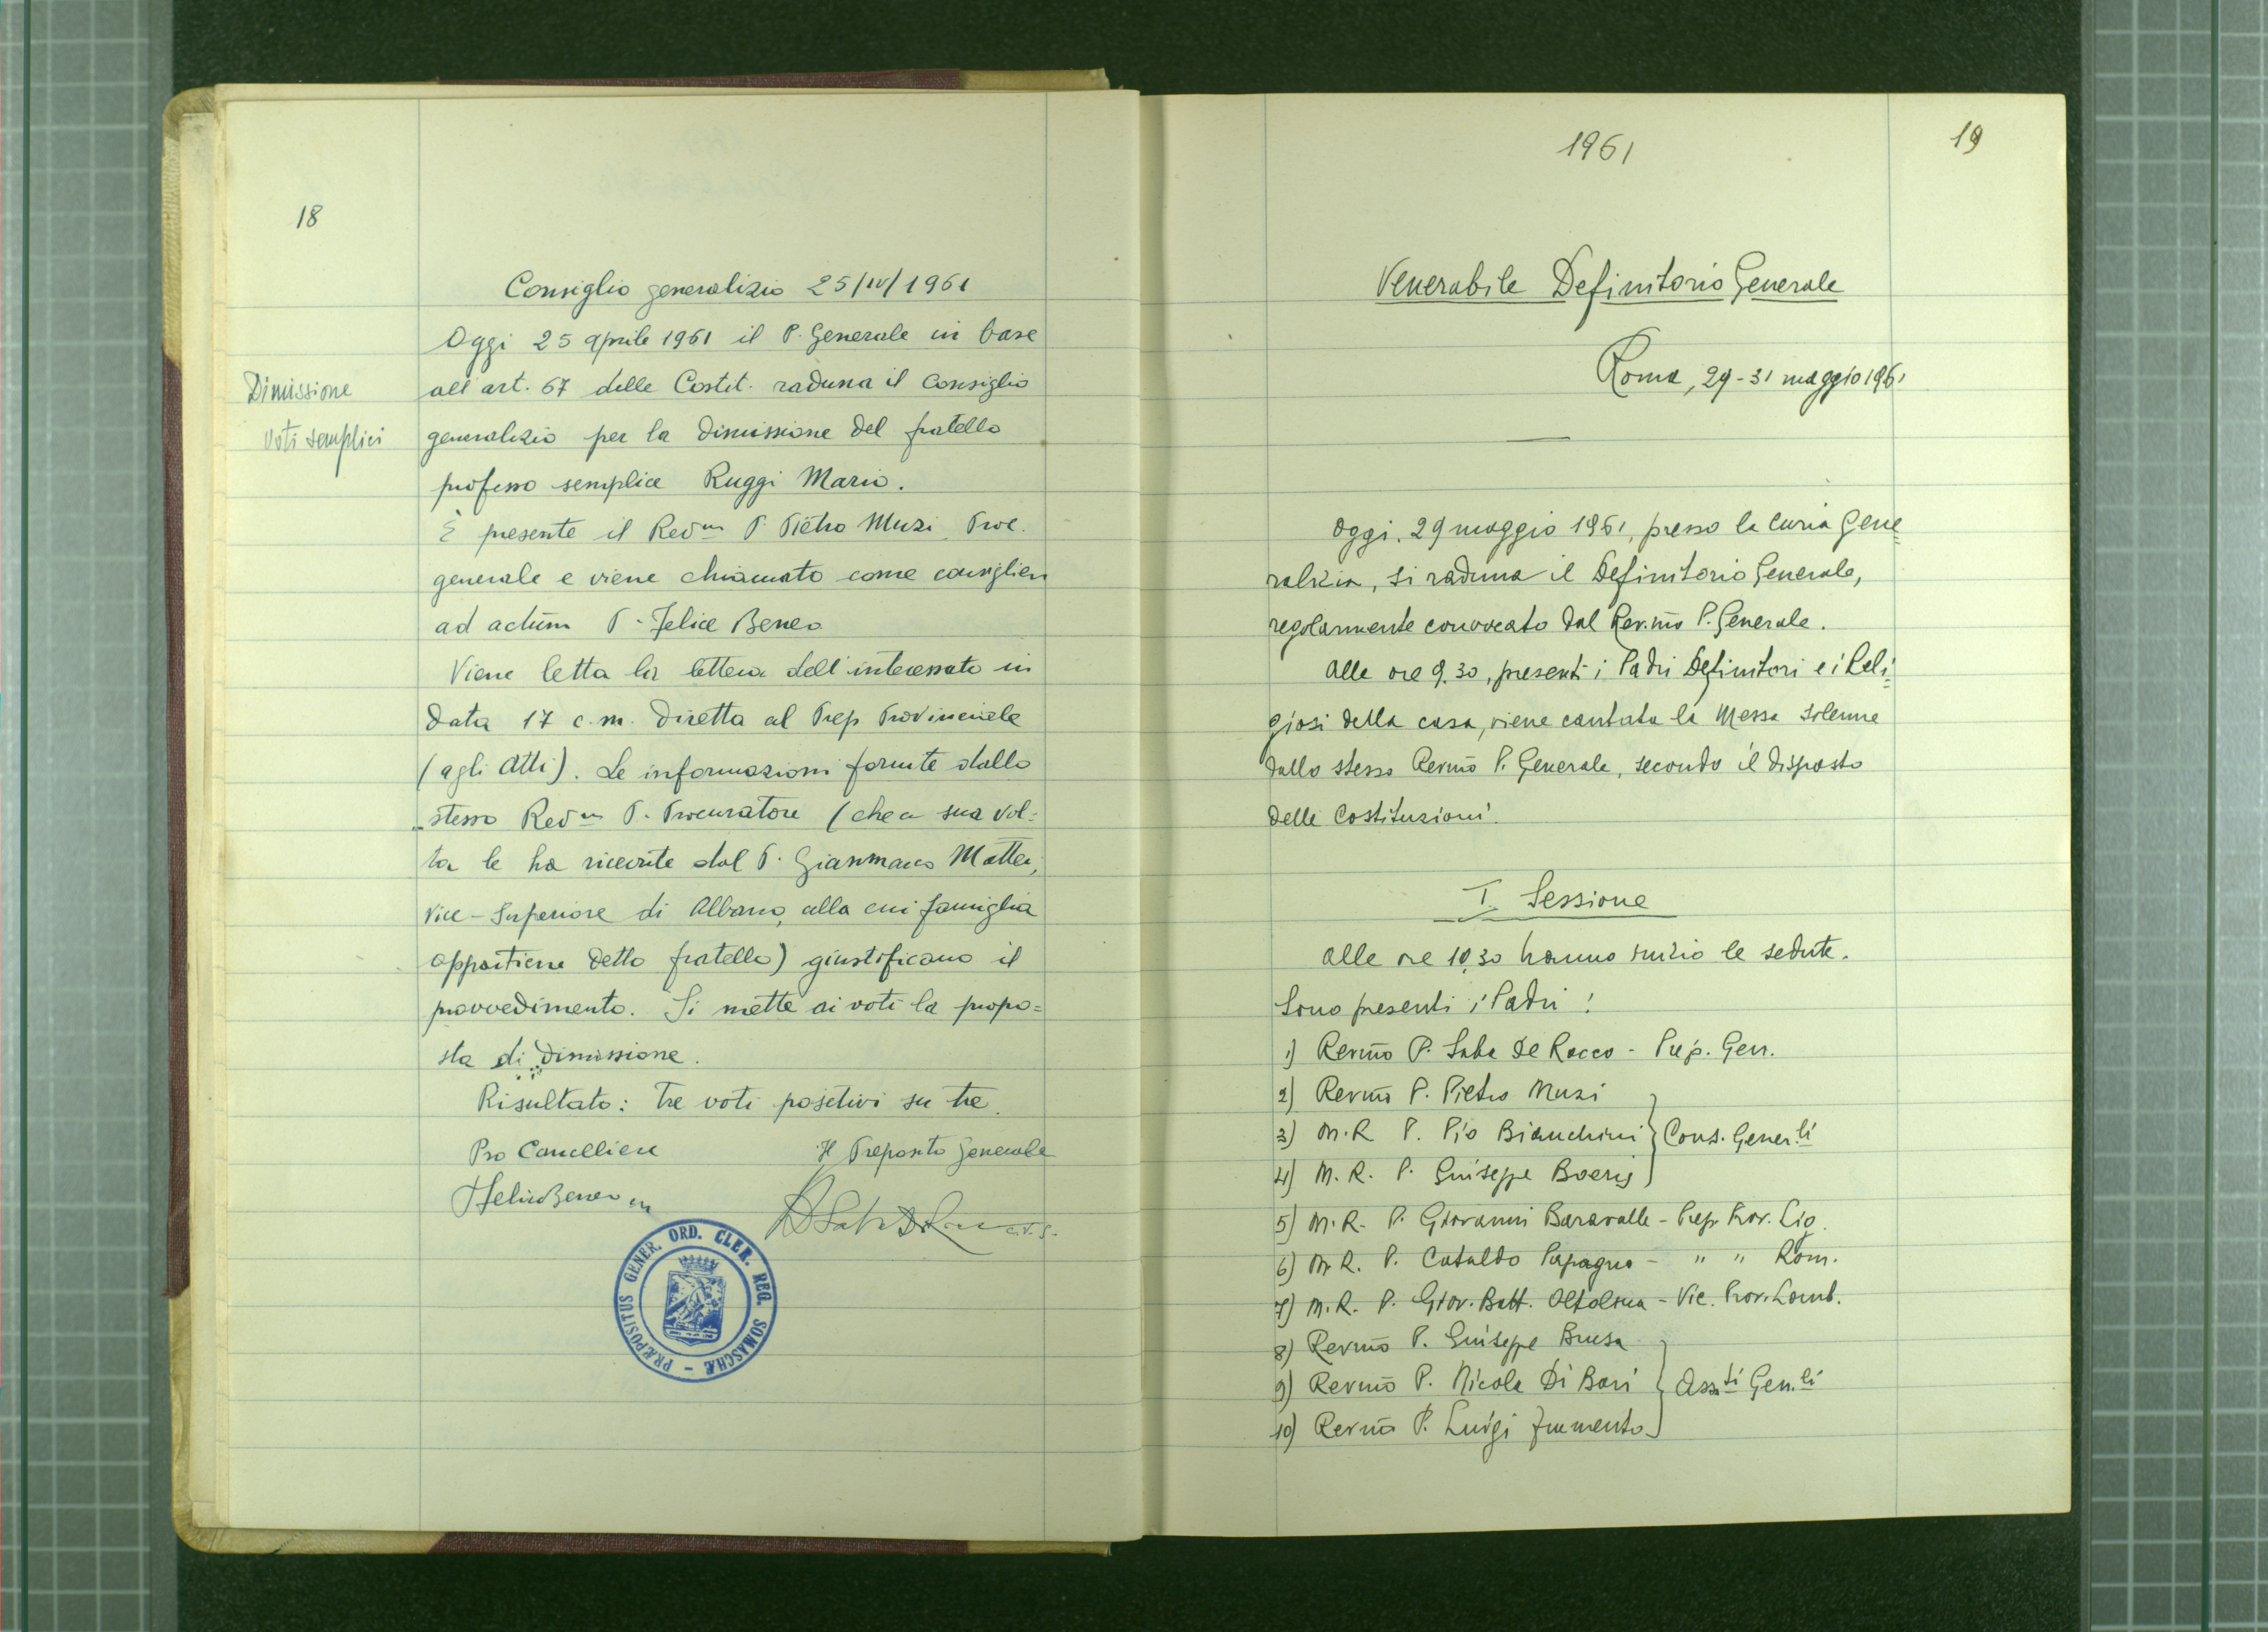 18
Consiglio generalizio 25/IV/1961
Oggi 25 aprile 1961 il P. Generale in base
Dimissione
all'art. 67 delle Costit. raduna il Consiglio
voti semplici
generalizio per la dimissione del fratello
professo semplice Ruggi Mario.
È presente il Rev.mo P. Pietro Muzi Proc.
generale e viene chiamato come consigliere
ad actum P. Felice Beneo
Viene letta la lettera dell'interessato in
data 17 c.m. diretta al Prep Provinciale
(agli Atti). Le informazioni fornite dallo
stesso Rev.mo P. Procuratore (che a sua vol=
ta le ha ricevute dal P. Gianmarco Mattei,
Vice-Superiore di Albano, alla cui famiglia
appartiene detto fratello) giustificano il
provvedimento. Si mette ai voti la propo=
sta di dimissione.
Risultato: tre voti positivi su tre.
Pro Cancelliere Il Preposito Generale
P Felice Beneo
c.r.s.
PRÆPOSITUS GENER. ORD. CLER. REG. SOMASCHÆ
1961
19
Venerabile Definitorio Generale
Roma, 29-31 maggio 1961
Oggi, 29 maggio 1961, presso la Curia Gene=
ralizia, si raduna il Definitorio Generale,
regolarmente convocato dal Rev.mo P. Generale.
Alle ore 9.30, presenti i Padri Definitori e i Reli=
giosi della casa, viene cantata la Messa solenne
dallo stesso Revmo P. Generale, secondo il disposto
delle Costituzioni.
I. Sessione
Alle ore 10,30 hanno inizio le sedute.
Sono presenti i Padri:
1) Revmo P. Saba De Rocco - Prep. Gen.
2) Revmo P. Pietro Muzi
3) M.R. P. Pio Bianchini } Cons. Gener.li
4) M.R. P. Giuseppe Boeris
5) M.R. P. Giovanni Baravalle - Prep. Prov. Lig.
6) M.R. P. Cataldo Papagno - " " Rom.
7) M.R. P. Giov. Batt. Oltolina - Vic. Prov. Lomb.
8) Revmo P. Giuseppe Brusa
9) Revmo P. Nicola Di Bari } Ass.ti Gen.li
10) Revmo P. Luigi Frumento